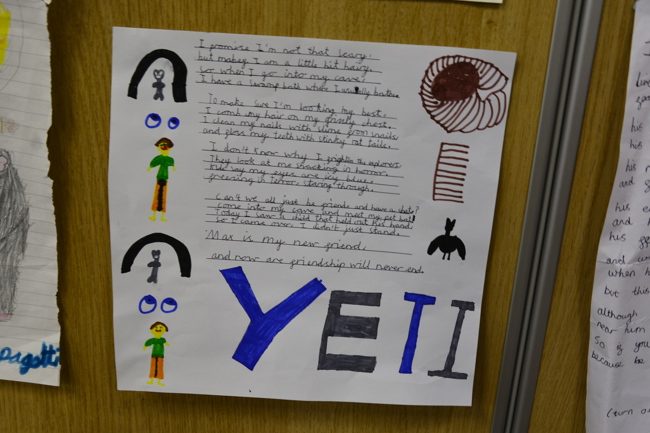 I promise I'm not that scary.
but mabey I am a little bit hairy.
So when I go into my cave.
I have a swamp bath where I usually bathe
To make sure I'm looking my best.
I comb my hair on my gnarly chest.
I clean my nails with slime from snails
and floss my teeth with stinky rat tails.
I don't know why I frighten the explorers
They look at me shacking in horror.
Kids say my eyes are icy blue.
freezing in terror, staring through.
Can't we all just be friends and have a
come into my cave and meet my pet bat!
Today I saw a child that held out his hand.
So I came over I didn't just stand.
Max is my new friend.
and now are friendship will never end.
YETI
pagetti
but this
although
near him
So if you
because he
(turn o